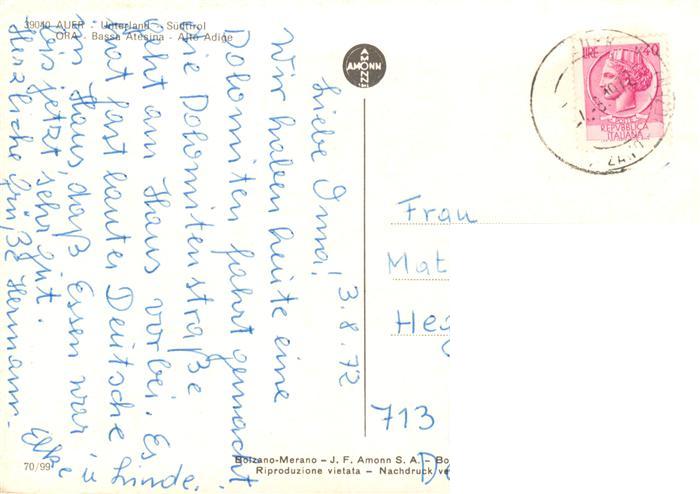 39040 AUER - Unterland - Südtirol
ORA - Bassa Atesina - Alto Adige
Liebe Omma! 3.8.72
Wir haben heute eine
Dolomiten fahrt gemacht
die Dolomitenstraße
geht am Haus vorbei. Es
hat fast lauter Deutsche
im Haus, daß Essen war
bis jetzt sehr gut.
Herzliche Grüße Hermann.
Elke
u Linde.
AMONN
AMONN
LIRE 40
POSTE
REPVBBLICA
ITALIANA
Frau
Mat
Heg
713
D
70/99
Bolzano-Merano - J. F. Amonn S. A. - Bo
Riproduzione vietata - Nachdruck ve